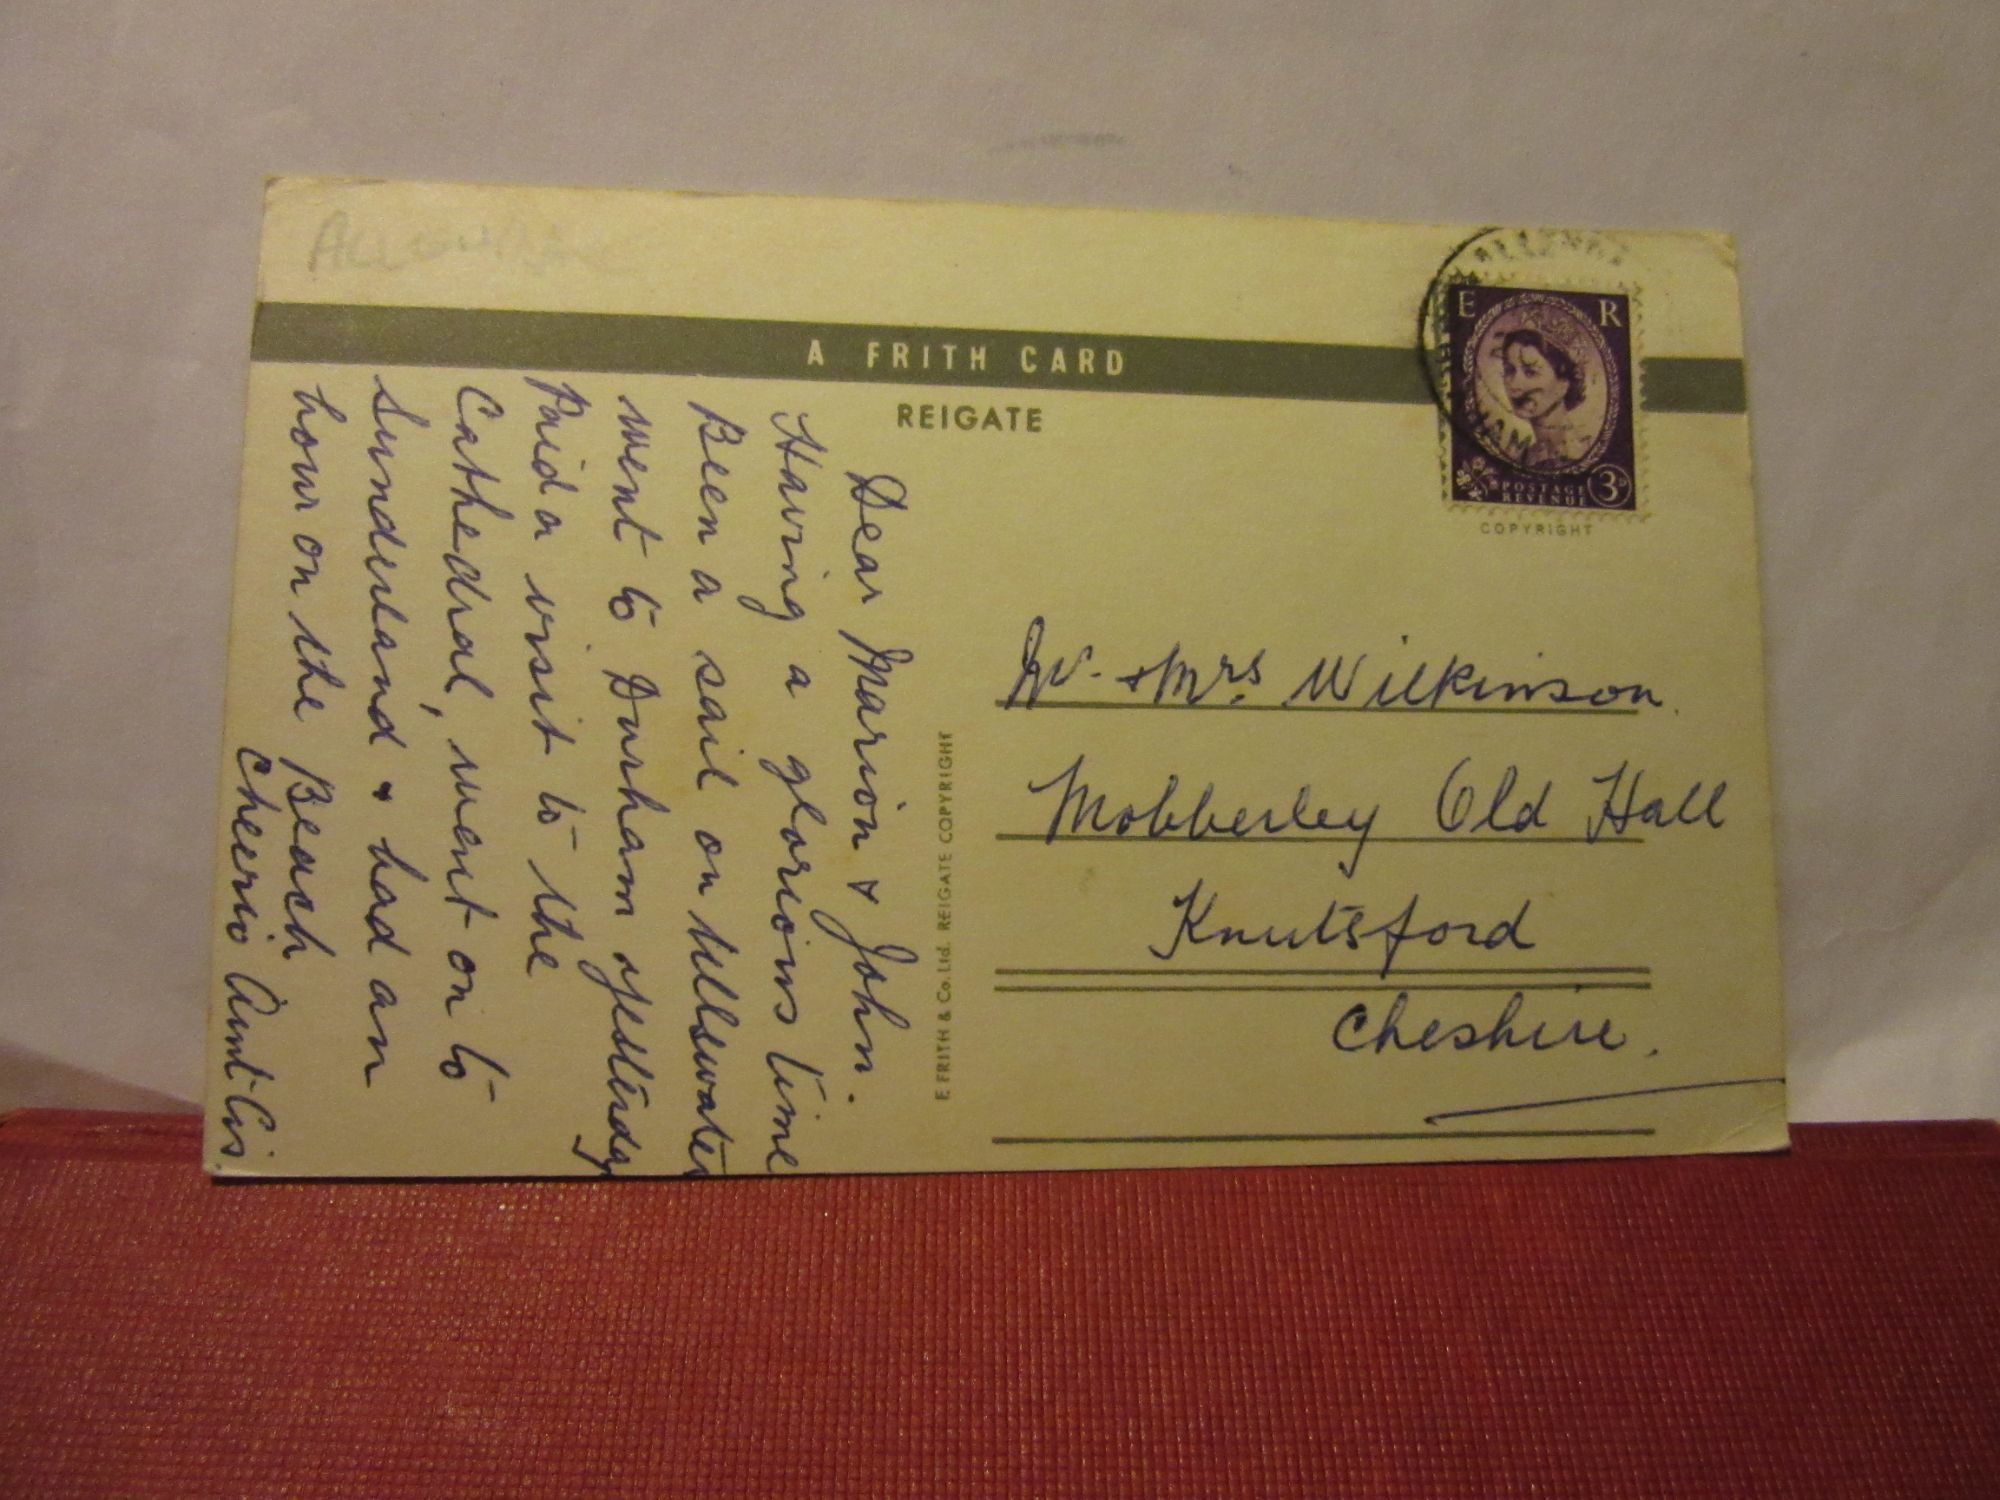 A FRITH CARD
REIGATE
E R
POSTAGE
REVENUE
3D
COPYRIGHT
Dear Marion & John.
Having a glorious time
Been a sail on Ullswater
went to Durham yesterday
Paid a visit to the
Cathedral, went on to
Sunderland & had an
hour on the Beach
Cheerio Aunt Cis.
E FRITH & Co. Ltd. REIGATE COPYRIGHT
Mr. & Mrs. Wilkinson.
Mobberley Old Hall
Knutsford
Cheshire.